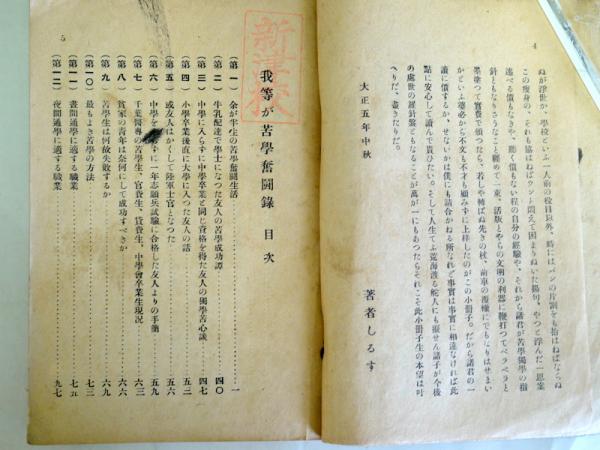 4
ぬが浮世か、學校といふ一人前の役目以外、時にはパンの片割をも拾はねばならぬ
この瘦身の、それも脇はねばウンと悶えて困まりぬいた揚句、やつと浮んだ一思案
述べる價もなきや、聽く價もない程の自分の經驗や、それから諸君が苦學獨學の指
針ともなりさうなこと纒めて一束、活版とやらの文明の利器に鞭打つてペラペラと
墨塗つて實費で頒つたら、若しや轉ばぬ先きの杖、前車の覆轍にでもなりはせまい
かといふ婆心から不文も不才も顧みずに上梓したのがこの小册子。だから諸君の一
讀に價するか、せないかは僕にも請合かねる所なれど事實は事實に相違なければ此
點に安心して讀んで貰ひたい。そして人生てふ荒海渡る舵人にも譲せん諸子が今後
の處世の羅針盤ともなることが萬が一にもあつたらそれこそ此小冊子生の本望は叶
へりだ、盡きたりだ。
大正五年中秋
著者しるす
我等が苦學奮鬪錄 目次
(第一) 余が半生の苦學奮鬪生活 一
(第二) 牛乳配達で學士になつた友人の苦學成功譚 四〇
(第三) 中學に入らずに中學卒業と同じ資格を得た友人の獨學苦心談 四七
(第四) 小學卒業後直に大學に入つた友人の話 五二
(第五) 或友人はかくして陸軍士官となつた 五六
(第六) 中學を に一年志願兵試驗に合格した友人よりの手簡 五九
(第七) 千葉醫專の苦學生、官費生、貸費生、中學會卒業生現況 六三
(第八) 貧家の靑年は奈何にして成功すべきか 六六
(第九) 苦學生は何故失敗するか 六九
(第一〇) 最もよき苦學の方法 七二
(第一一) 晝間通學に適する職業 七五
(第一二) 夜間通學に適する職業 九七
5